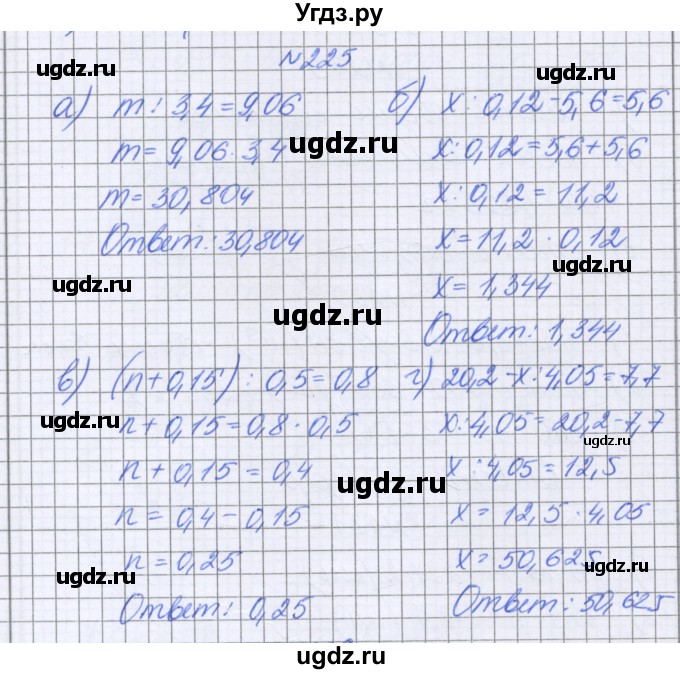 Угдз.ру
№225
а) m : 3,4 = 9,06
m = 9,06 · 3,4
m = 30,804
Ответ: 30,804
б) x : 0,12 - 5,6 = 5,6
x : 0,12 = 5,6 + 5,6
x : 0,12 = 11,2
x = 11,2 · 0,12
x = 1,344
Ответ: 1,344
в) (n + 0,15) : 0,5 = 0,8
n + 0,15 = 0,8 · 0,5
n + 0,15 = 0,4
n = 0,4 - 0,15
n = 0,25
Ответ: 0,25
г) 20,2 - x : 4,05 = 7,7
x : 4,05 = 20,2 - 7,7
x : 4,05 = 12,5
x = 12,5 · 4,05
x = 50,625
Ответ: 50,625
ugdz.ru
ugdz.ru
ugdz.ru
ugdz.ru
ugdz.ru
ugdz.ru
ugdz.ru
ugdz.ru
ugdz.ru
ugdz.ru
ugdz.ru
ugdz.ru